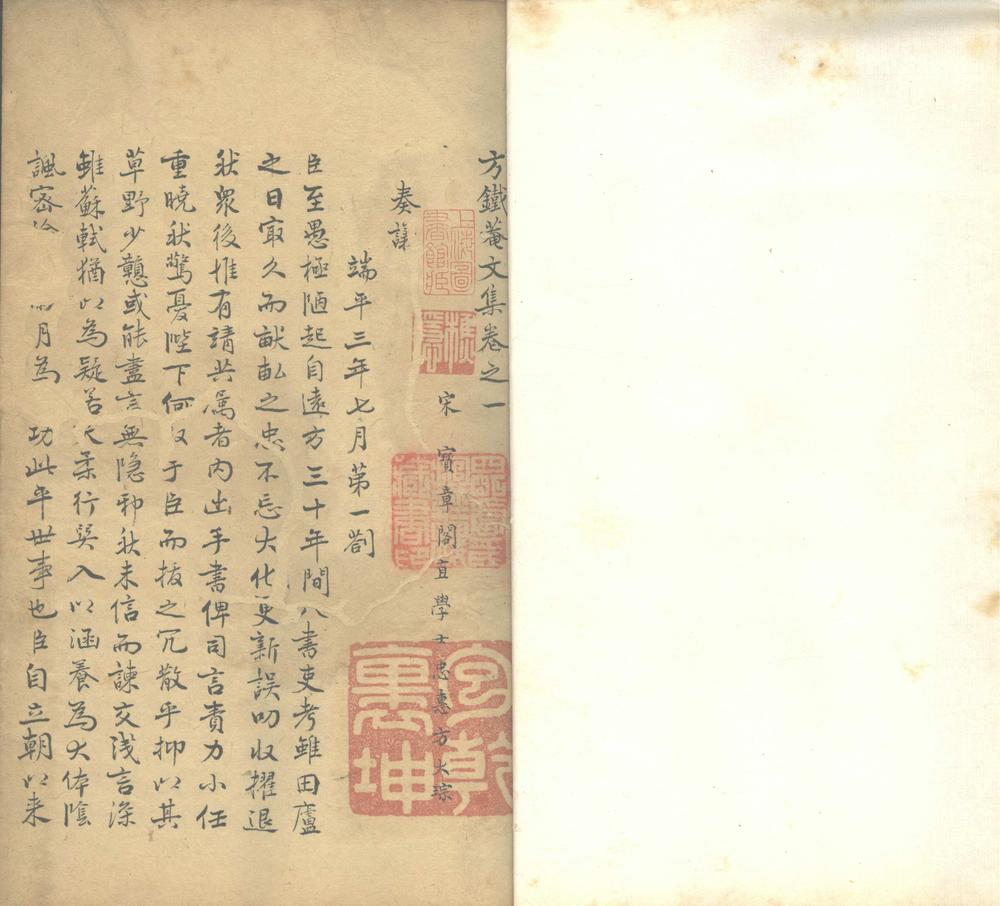 方鐵菴文集卷之一
宋 寶章閣直學士忠惠方大琮
奏議
端平三年七月第一劄
臣至愚極陋起自遠方三十年間八書吏考雖田廬
之日寂久而畎畝之忠不忘大化更新誤叨收擢退
状衆後惟有請共属者内出手書俾司言責力小任
重曉状驚憂陛下何以于臣而拔之冗散乎抑以其
草野少戇或能盡言無隐耶状未信而諫交浅言深
雖蘇軾猶以為疑若柔行巽入以涵養為大体陰
諷密 月為 功此平世事也臣自立朝以来
上海圖書館藏
包乾裹坤